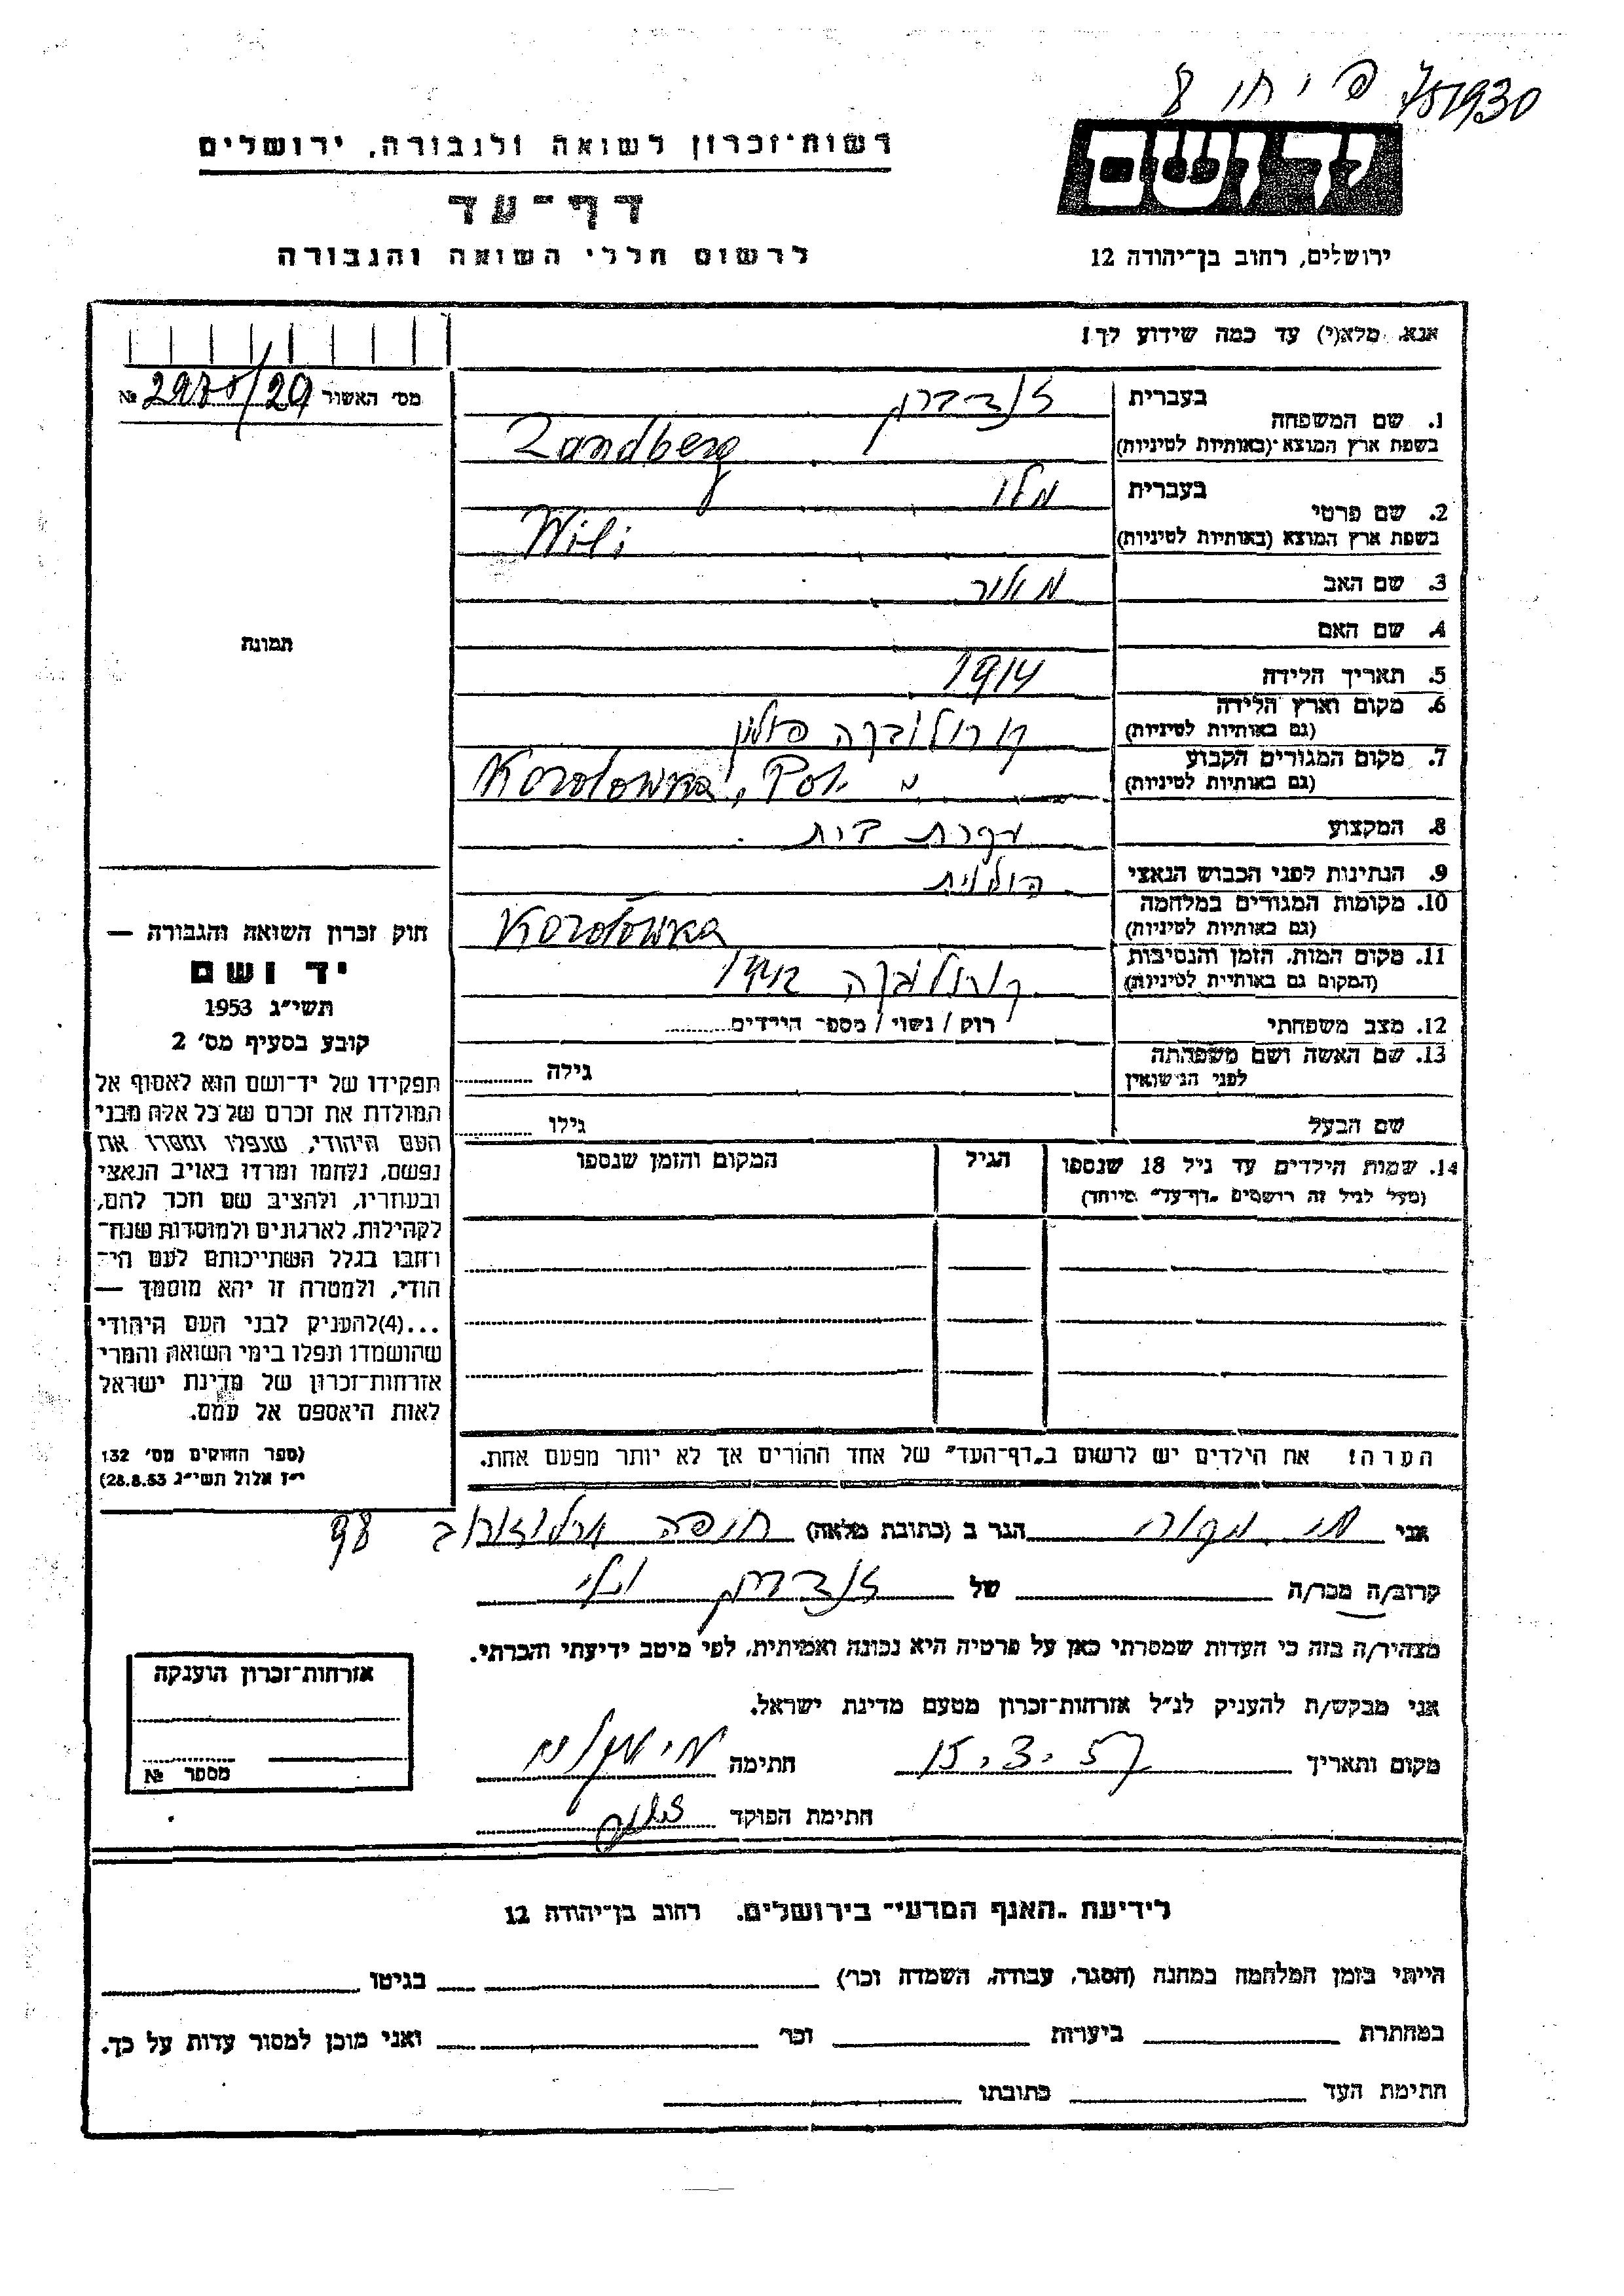 751930
רשות־זכרון לשואה ולגבורה, ירושלים
יד ושם
דף־עד
לרשום חללי השואה והגבורה
ירושלים, רחוב בן־יהודה 12
אנא, מלא(י) עד כמה שידוע לך!
מס׳ האשור 2975/29 №
1. שם המשפחה בעברית זנדברג
בשפת ארץ המוצא (באותיות לטיניות) Zandberg
2. שם פרטי בעברית
בשפת ארץ המוצא (באותיות לטיניות) Wili
3. שם האב
4. שם האם
5. תאריך הלידה 1914
6. מקום וארץ הלידה (גם באותיות לטיניות) קורולובקה פולין
7. מקום המגורים הקבוע (גם באותיות לטיניות) Korolówka, Pol.
8. המקצוע עקרת בית
9. הנתינות לפני הכבוש הנאצי פולנית
10. מקומות המגורים במלחמה (גם באותיות לטיניות) Korolówka
11. מקום המות, הזמן והנסיבות (המקום גם באותיות לטיניות) קורולובקה 1942
12. מצב משפחתי רוק / נשוי / מספר הילדים
13. שם האשה ושם משפחתה לפני הנישואין גילה
שם הבעל גילו
14. שמות הילדים עד גיל 18 שנספו הגיל המקום והזמן שנספו
(מעל לגיל זה רושמים „דף־עד״ מיוחד)
הערה: את הילדים יש לרשום ב„דף־העד״ של אחד ההורים אך לא יותר מפעם אחת.
תמונה
חוק זכרון השואה והגבורה —
יד ושם
תשי״ג 1953
קובע בסעיף מס׳ 2
תפקידו של יד־ושם הוא לאסוף אל
המולדת את זכרם של כל אלה מבני
העם היהודי, שנפלו ומסרו את
נפשם, נלחמו ומרדו באויב הנאצי
ובעוזריו, ולהציב שם וזכר להם,
לקהילות, לארגונים ולמוסדות שנח־
רבו בגלל השתייכותם לעם הי־
הודי, ולמטרה זו יהא מוסמך —
...(4) להעניק לבני העם היהודי
שהושמדו ונפלו בימי השואה והמרי
אזרחות־זכרון של מדינת ישראל
לאות היאספם אל עמם.
(ספר החוקים מס׳ 132
י״ז אלול תשי״ג 28.8.53)
אני הגר ב (כתובת מלאה) חיפה ארלוזורוב 98
קרוב/ה מכר/ה של זנדברג וילי
מצהיר/ה בזה כי העדות שמסרתי כאן על פרטיה היא נכונה ואמיתית, לפי מיטב ידיעתי והכרתי.
אני מבקש/ת להעניק לנ״ל אזרחות־זכרון מטעם מדינת ישראל.
מקום ותאריך 15.3.57 חתימה
חתימת הפוקד
אזרחות־זכרון הוענקה
מספר №
לידיעת „האגף המדעי״ בירושלים, רחוב בן־יהודה 12
הייתי בזמן המלחמה במחנה (הסגר, עבודה, השמדה וכר׳) בגיטו
במחתרת ביערות וכר׳ ואני מוכן למסור עדות על כך.
חתימת העד כתובתו